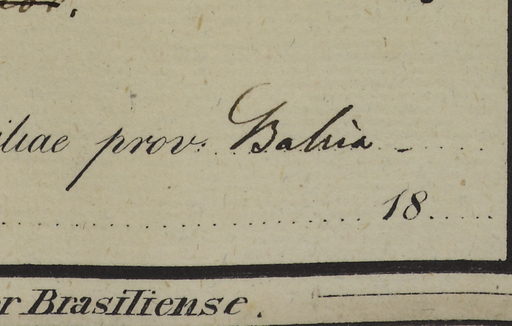 iliae prov. Bahia
18
r Brasiliense.